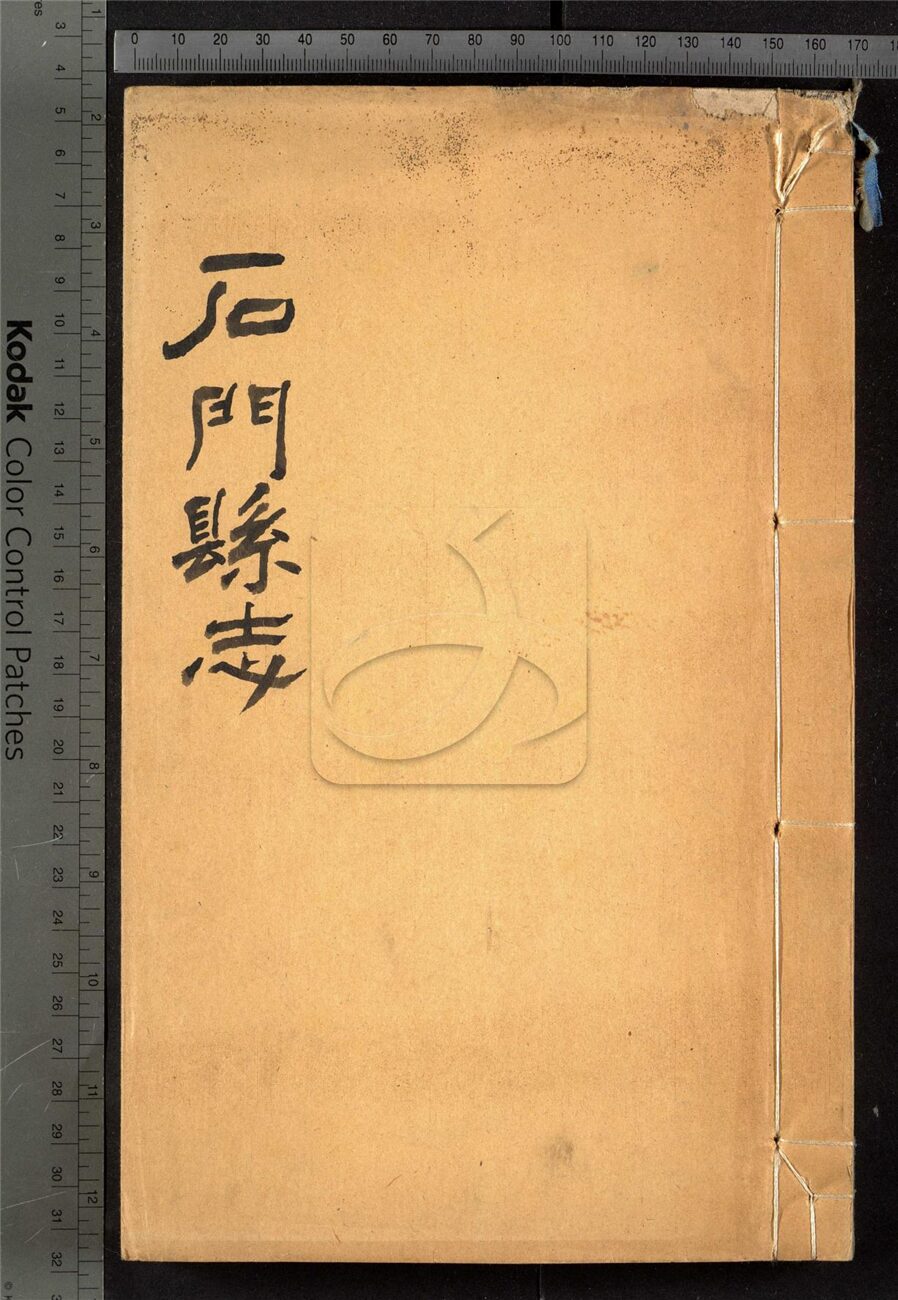 石門縣志
0 10 20 30 40 50 60 70 80 90 100 110 120 130 140 150 160 170
Kodak Color Control Patches
3 4 5 6 7 8 9 10 11 12 13 14 15 16 17 18 19 20 21 22 23 24 25 26 27 28 29 30 31 32
1 2 3 4 5 6 7 8 9 10 11 12